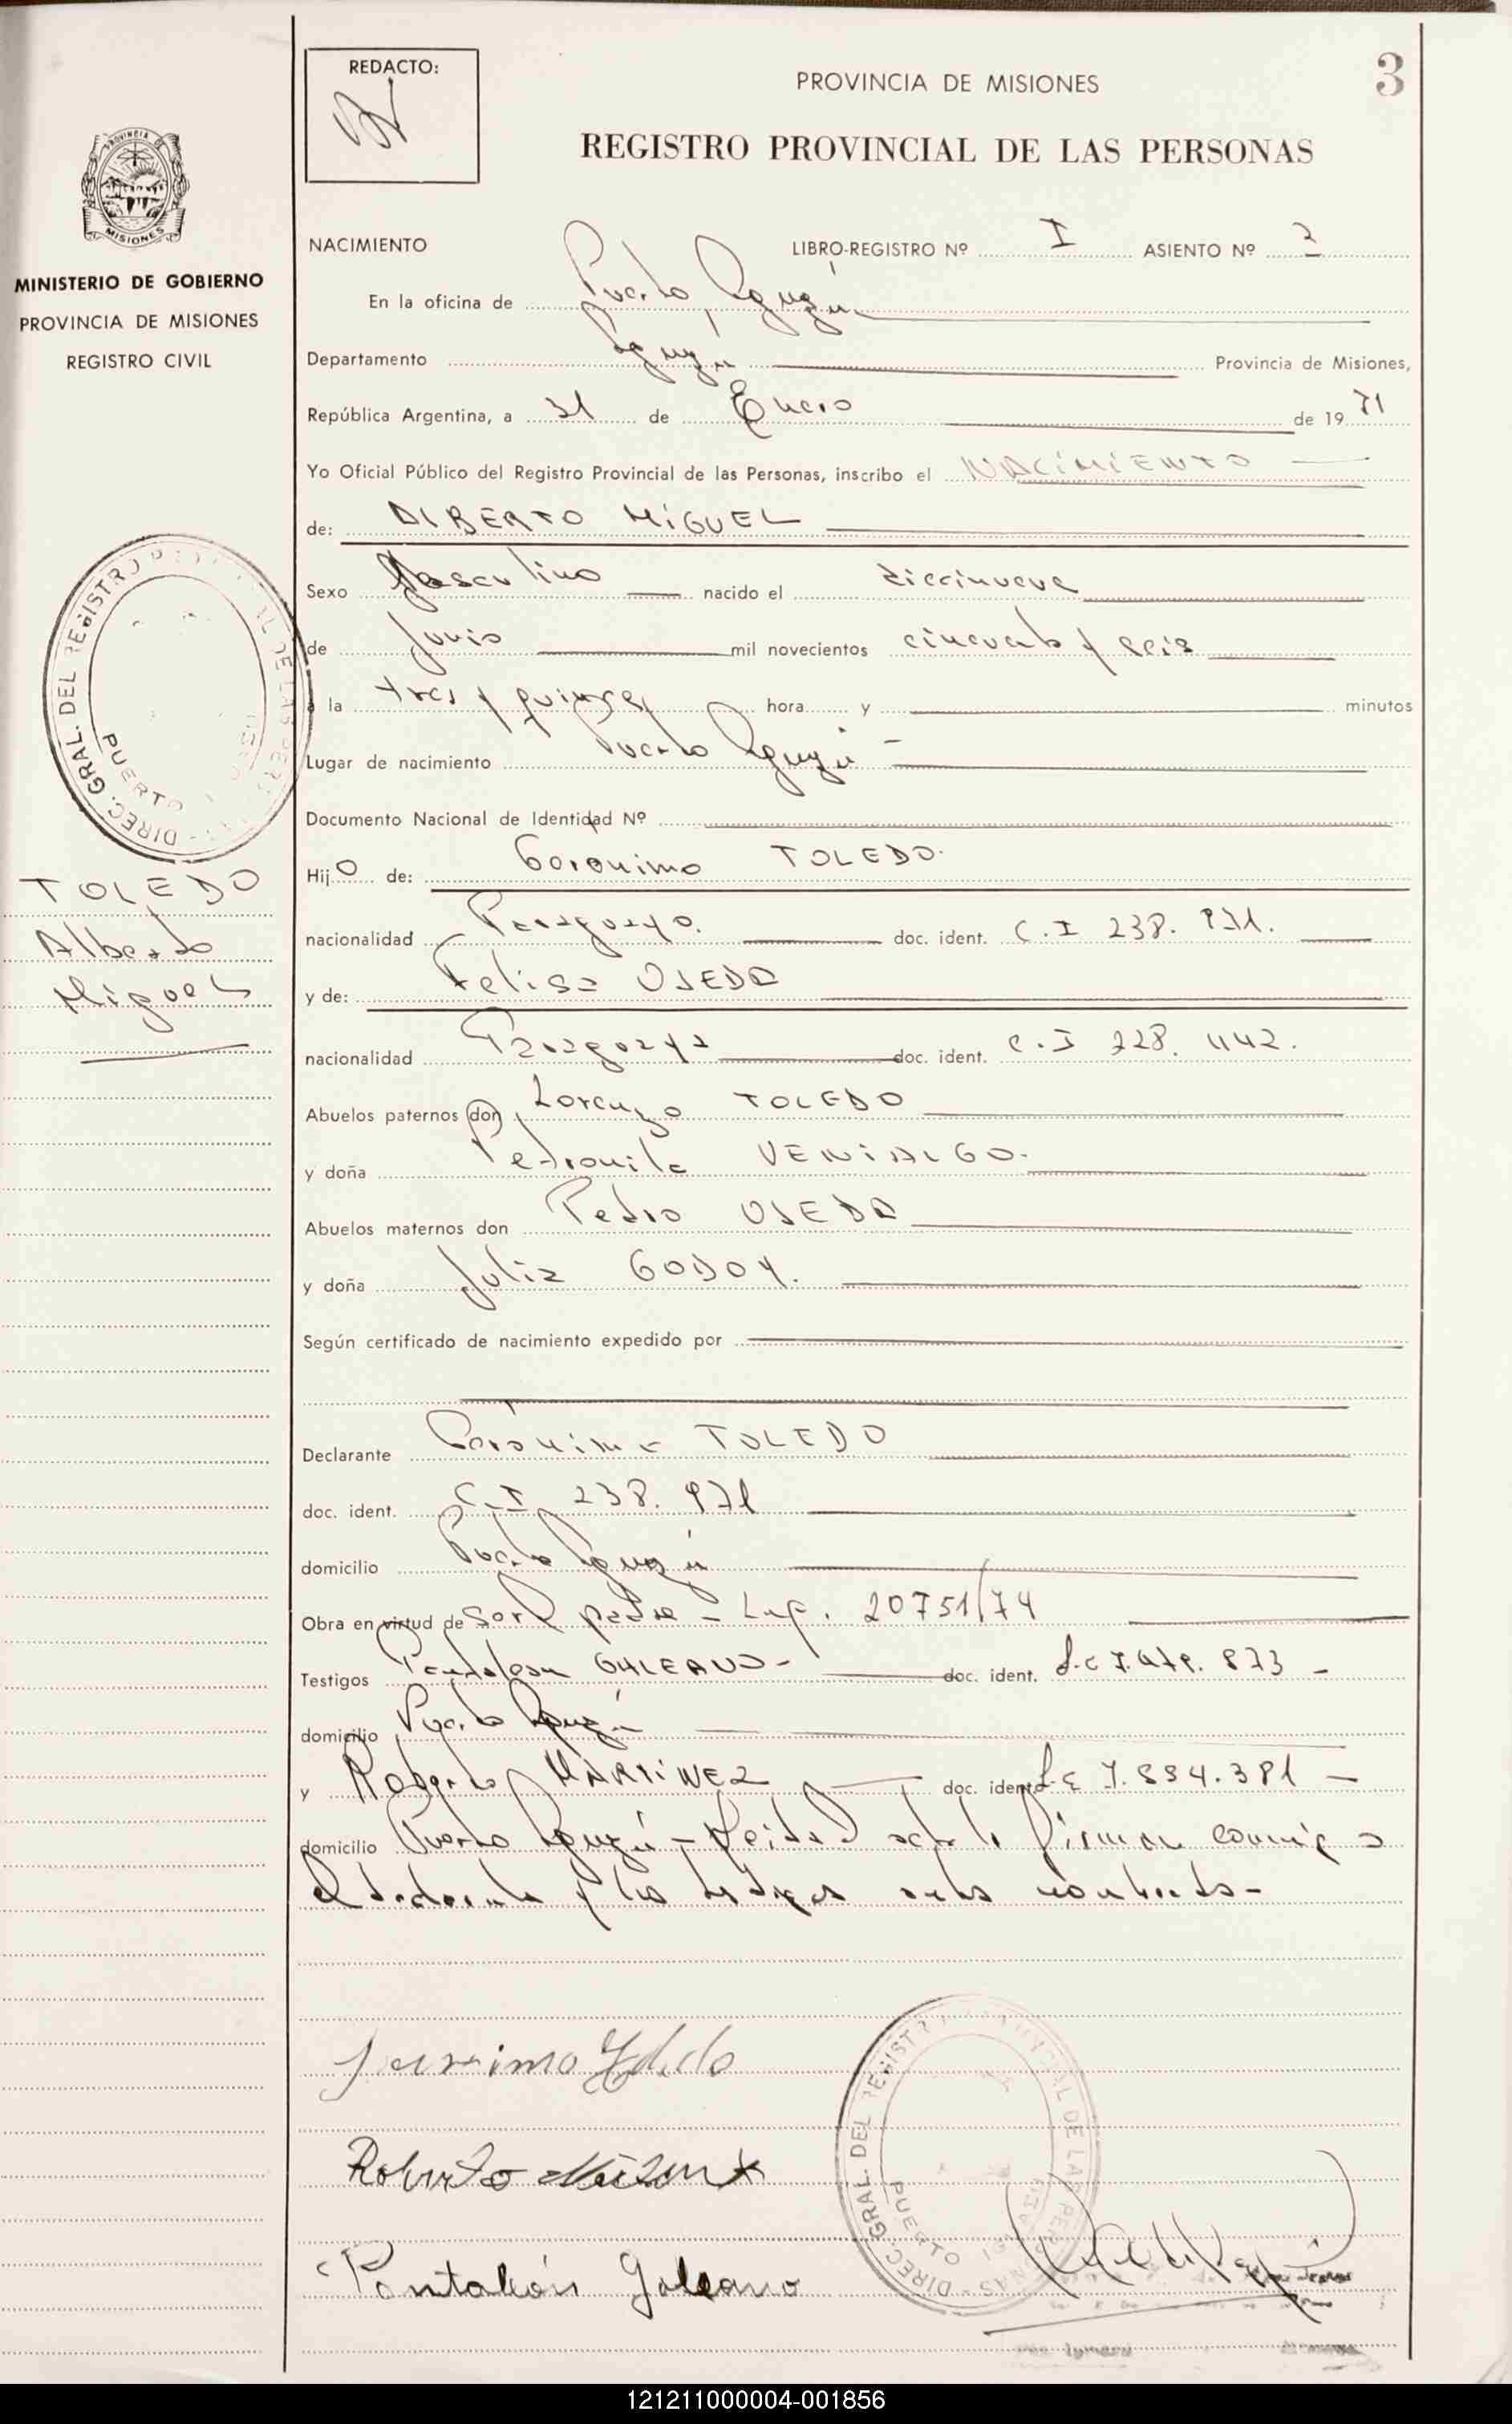 REDACTO:
PROVINCIA DE MISIONES
3
REGISTRO PROVINCIAL DE LAS PERSONAS
PROVINCIA DE
MISIONES
MINISTERIO DE GOBIERNO
PROVINCIA DE MISIONES
REGISTRO CIVIL
NACIMIENTO LIBRO-REGISTRO Nº I ASIENTO Nº 2
En la oficina de Puerto Iguazú
Departamento Iguazú Provincia de Misiones,
República Argentina, a 31 de Enero de 19 71
Yo Oficial Público del Registro Provincial de las Personas, inscribo el NACIMIENTO
de: ALBERTO MIGUEL
Sexo Masculino nacido el diecinueve
de Junio mil novecientos cincuenta y seis
a la tres y quince hora y minutos
Lugar de nacimiento Puerto Iguazú
Documento Nacional de Identidad Nº
Hijo de: Gerónimo TOLEDO.
nacionalidad Paraguayo. doc. ident. C.I 238. 931.
y de: Felisa OJEDA
nacionalidad Paraguaya doc. ident. C.I 228. 442.
Abuelos paternos don Lorenzo TOLEDO
y doña Petronila VENIALGO.
Abuelos maternos don Pedro OJEDA
y doña Julia GODOY.
Según certificado de nacimiento expedido por
Declarante Gerónimo TOLEDO
doc. ident. C.I 238. 931
domicilio Puerto Iguazú
Obra en virtud de ser el padre - 20751/74
Testigos Pantaleón GALEANO - doc. ident. 873 -
domicilio Puerto Iguazú
y Roberto MARTINEZ doc. ident. 381 -
domicilio Puerto Iguazú - Leida el acta la firman conmigo
el declarante y los testigos
DIREC. GRAL. DEL REGISTRO PROVINCIAL DE LAS PERSONAS
PUERTO IGUAZU
TOLEDO
Alberto
Miguel
Jeronimo Toledo
Roberto Martinez
Pantaleón Galeano
DIREC. GRAL. DEL REGISTRO PROVINCIAL DE LAS PERSONAS
PUERTO IGUAZU
121211000004-001856